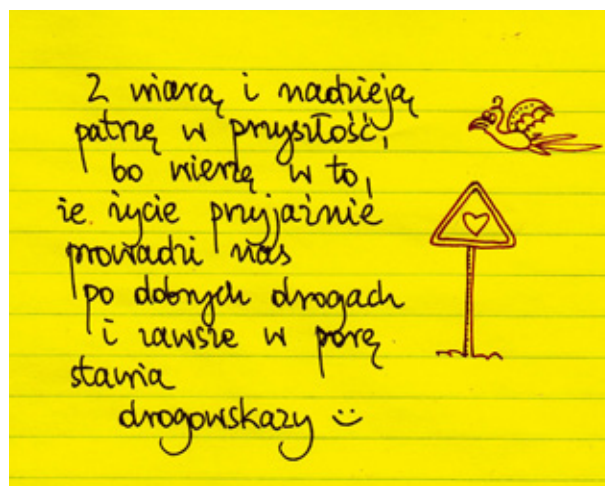 Z wiarą i nadzieją
patrzę w przyszłość,
bo wierzę w to,
że życie przyjaźnie
prowadzi nas
po dobrych drogach
i zawsze w porę
stawia
drogowskazy :)